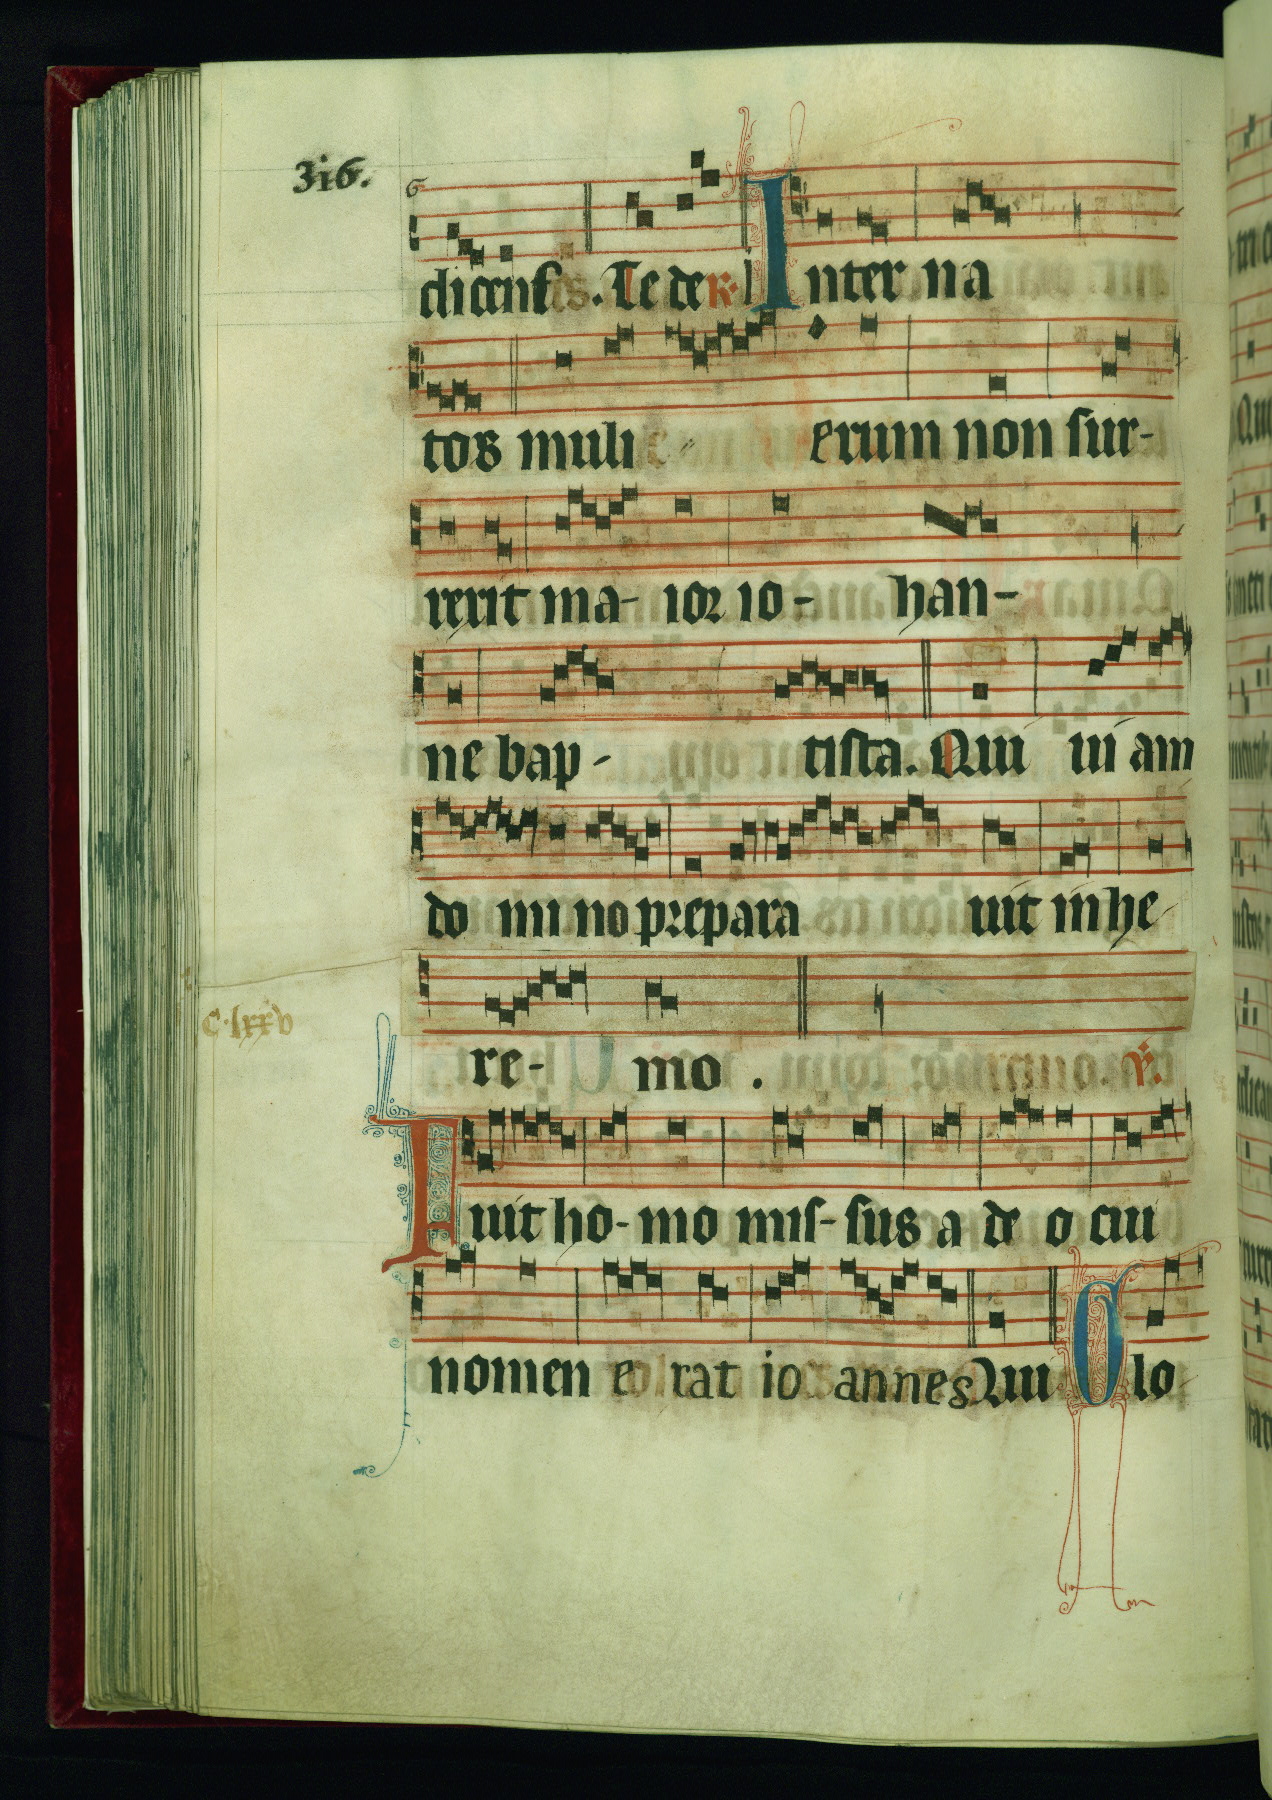 3i6.
G
dicens. Te de R. Inter na
tos muli erum non sur-
rexit ma- ior io- han-
ne bap- tista. Qui ui am
do mi no prepara uit in he
C·lxxv
re- mo . V.
Fuit ho- mo mis- sus a de o cui
nomen e rat io annes Qui Glo